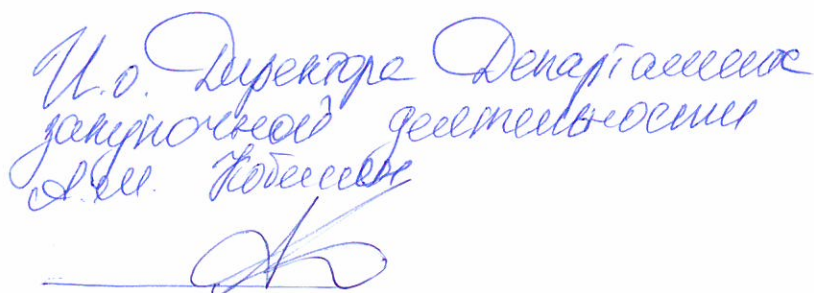 И.о. Директора Департамента
закупочной деятельности
А.М.